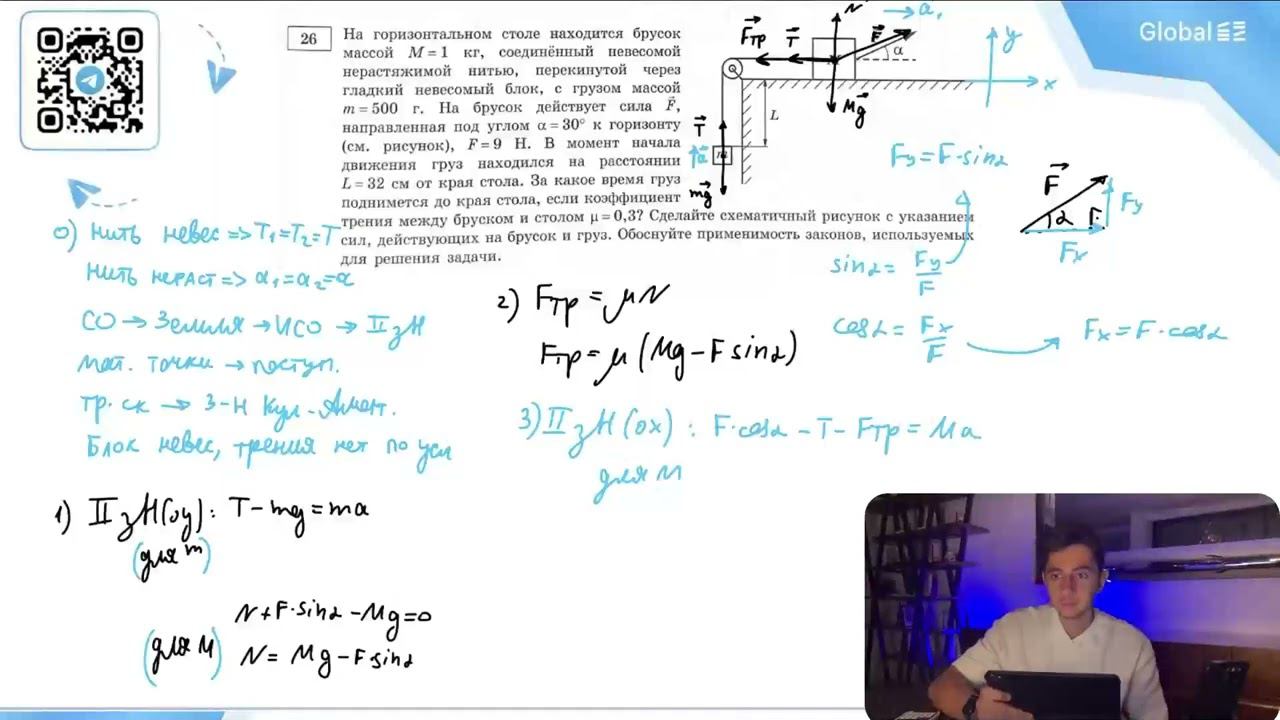 Global EE
26
На горизонтальном столе находится брусок
массой M = 1 кг, соединённый невесомой
нерастяжимой нитью, перекинутой через
гладкий невесомый блок, с грузом массой
m = 500 г. На брусок действует сила F⃗,
направленная под углом α = 30° к горизонту
(см. рисунок), F = 9 Н. В момент начала
движения груз находился на расстоянии
L = 32 см от края стола. За какое время груз
поднимется до края стола, если коэффициент
трения между бруском и столом μ = 0,3? Сделайте схематичный рисунок с указанием
сил, действующих на брусок и груз. Обоснуйте применимость законов, используемых
для решения задачи.
F⃗тр
T⃗
N⃗
F⃗
α
a⃗₁
y
x
Mg⃗
L
T⃗
a⃗
m
mg⃗
Fy = F·sinα
F⃗
α
Fy
Fx
sinα = Fy/F
cosα = Fx/F
Fx = F·cosα
0) Нить невес => T₁=T₂=T
Нить нераст => a₁=a₂=a
СО → Земля → ИСО → II зН
мат. точки → поступ.
тр. ск → З-н Кул-Амонт.
Блок невес, трения нет по усл
1) II зН(оу): T - mg = ma
(для m)
N + F·sinα - Mg = 0
(для M) N = Mg - Fsinα
2) Fтр = μN
Fтр = μ(Mg - Fsinα)
3) II зН(ох): F·cosα - T - Fтр = Ma
для M